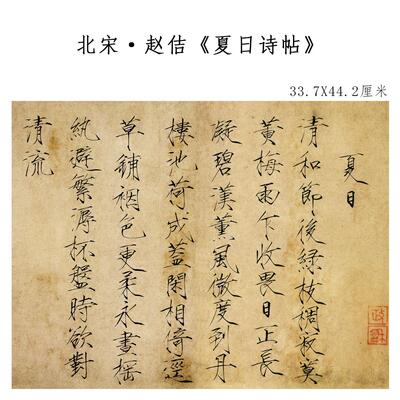 北宋•赵佶《夏日诗帖》
33.7X44.2厘米
夏日
清和節後綠枝稠寂寞
黃梅雨乍收畏日正長
凝碧漢薰風微度到丹
樓池荷成蓋閑相倚逕
草鋪裀色更柔永晝搖
紈避繁溽杯盤時欲對
清流